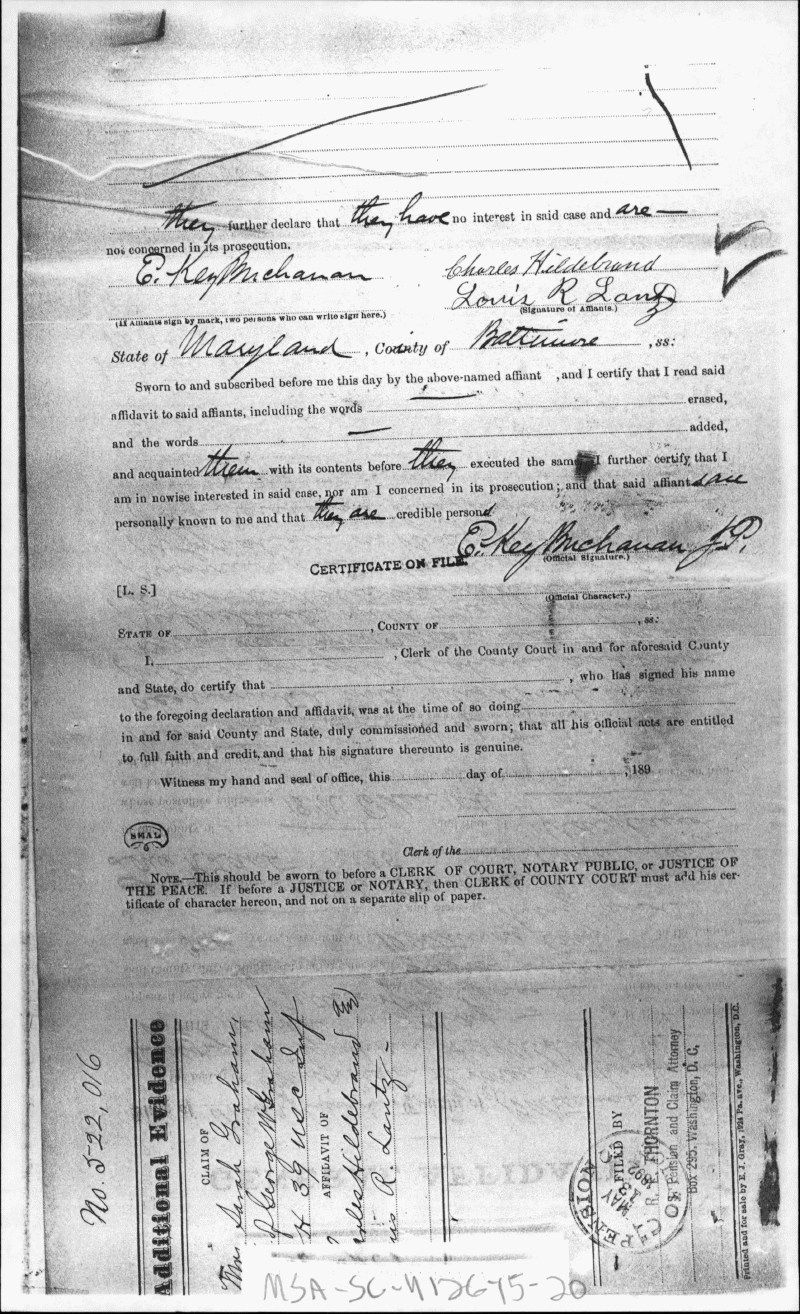 they further declare that they have no interest in said case and are —
not concerned in its prosecution.
E. Key Buchanan Charles Hildebrand
Louis R Lantz
(If Affiants sign by mark, two persons who can write sign here.) (Signature of Affiants.)
State of Maryland , County of Baltimore , ss:
Sworn to and subscribed before me this day by the above-named affiant , and I certify that I read said
affidavit to said affiants, including the words — erased,
and the words — added,
and acquainted them with its contents before they executed the same. I further certify that I
am in nowise interested in said case, nor am I concerned in its prosecution; and that said affiants are
personally known to me and that they are credible persons
E. Key Buchanan J.P.
(Official Signature.)
CERTIFICATE ON FILE.
[L. S.]
(Official Character.)
STATE OF , COUNTY OF , ss:
I, , Clerk of the County Court in and for aforesaid County
and State, do certify that , who has signed his name
to the foregoing declaration and affidavit, was at the time of so doing
in and for said County and State, duly commissioned and sworn; that all his official acts are entitled
to full faith and credit, and that his signature thereunto is genuine.
Witness my hand and seal of office, this day of , 189
SEAL
Clerk of the
NOTE.—This should be sworn to before a CLERK OF COURT, NOTARY PUBLIC, or JUSTICE OF
THE PEACE. If before a JUSTICE or NOTARY, then CLERK of COUNTY COURT must add his cer-
tificate of character hereon, and not on a separate slip of paper.
No. 522,016
Additional Evidence
CLAIM OF
Mrs Sarah Graham,
of George W Graham
H 39 USC Inf
AFFIDAVIT OF
arles Hildebrand and
uis R Lantz
FILED BY
R. E. THORNTON
Pension and Claim Attorney
Box 295. Washington, D. C.
PENSION
MAY
13
1892
Printed and for sale by E. J. Gray, Pa. ave., Washington, D.C.
MSA-SC-4126-75-20